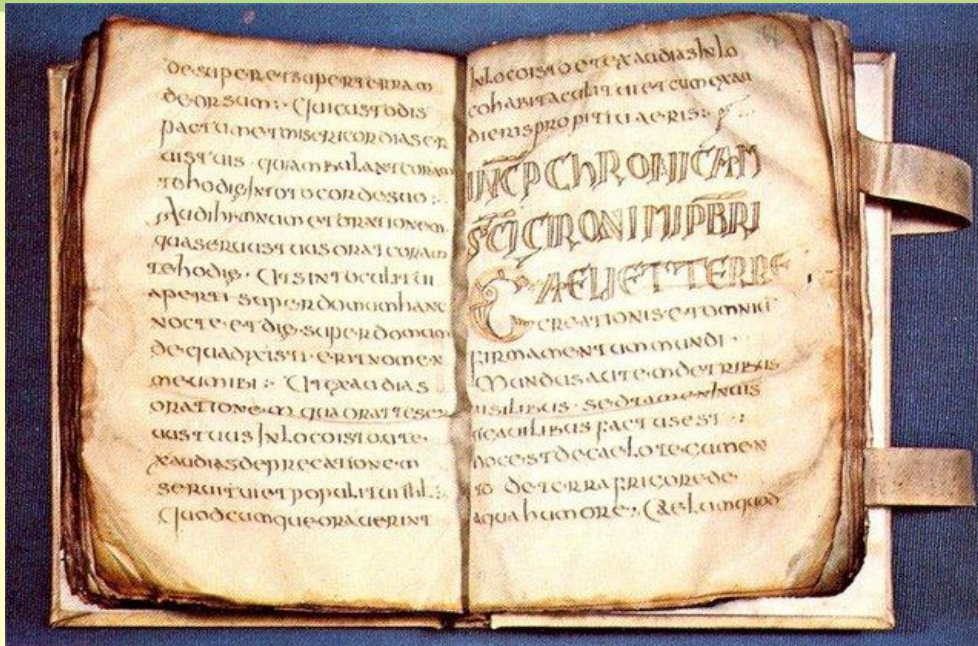 desuper et super terram
deorsum :· Qui custodis
pactum et misericordias ser
uis tuis · qua ambulant coram
te hodie In toto corde suo :·
Audi hymnum et orationem
qua seruus tuus orat coram
te hodie · Ut sint oculi tui
aperti · super domum hanc
nocte · et die · super domum
de qua dixisti · erit nomen
meum ibi :· Ut exaudias
orationem qua orat te ser
uus tuus In loco isto · ut e
xaudias deprecationem
serui tui et populi tui ihl :·
Quodcumque orauerint
In loco isto et exaudias In lo
co habitaculi tui et cum exau
dieris propitiu aeris :·
INCP CHRONICAM
SCI GIRONIMI PBRI
CAELI ET TERRE
creationis et omniu
firmamentum mundi ·
Mundus autem de tribus
uisilibus · sed tamen Inuis
ticauilibus factus est :·
hoc est de caelo tegumen
to de terra frigore de
aqua humore :· Caelum quod